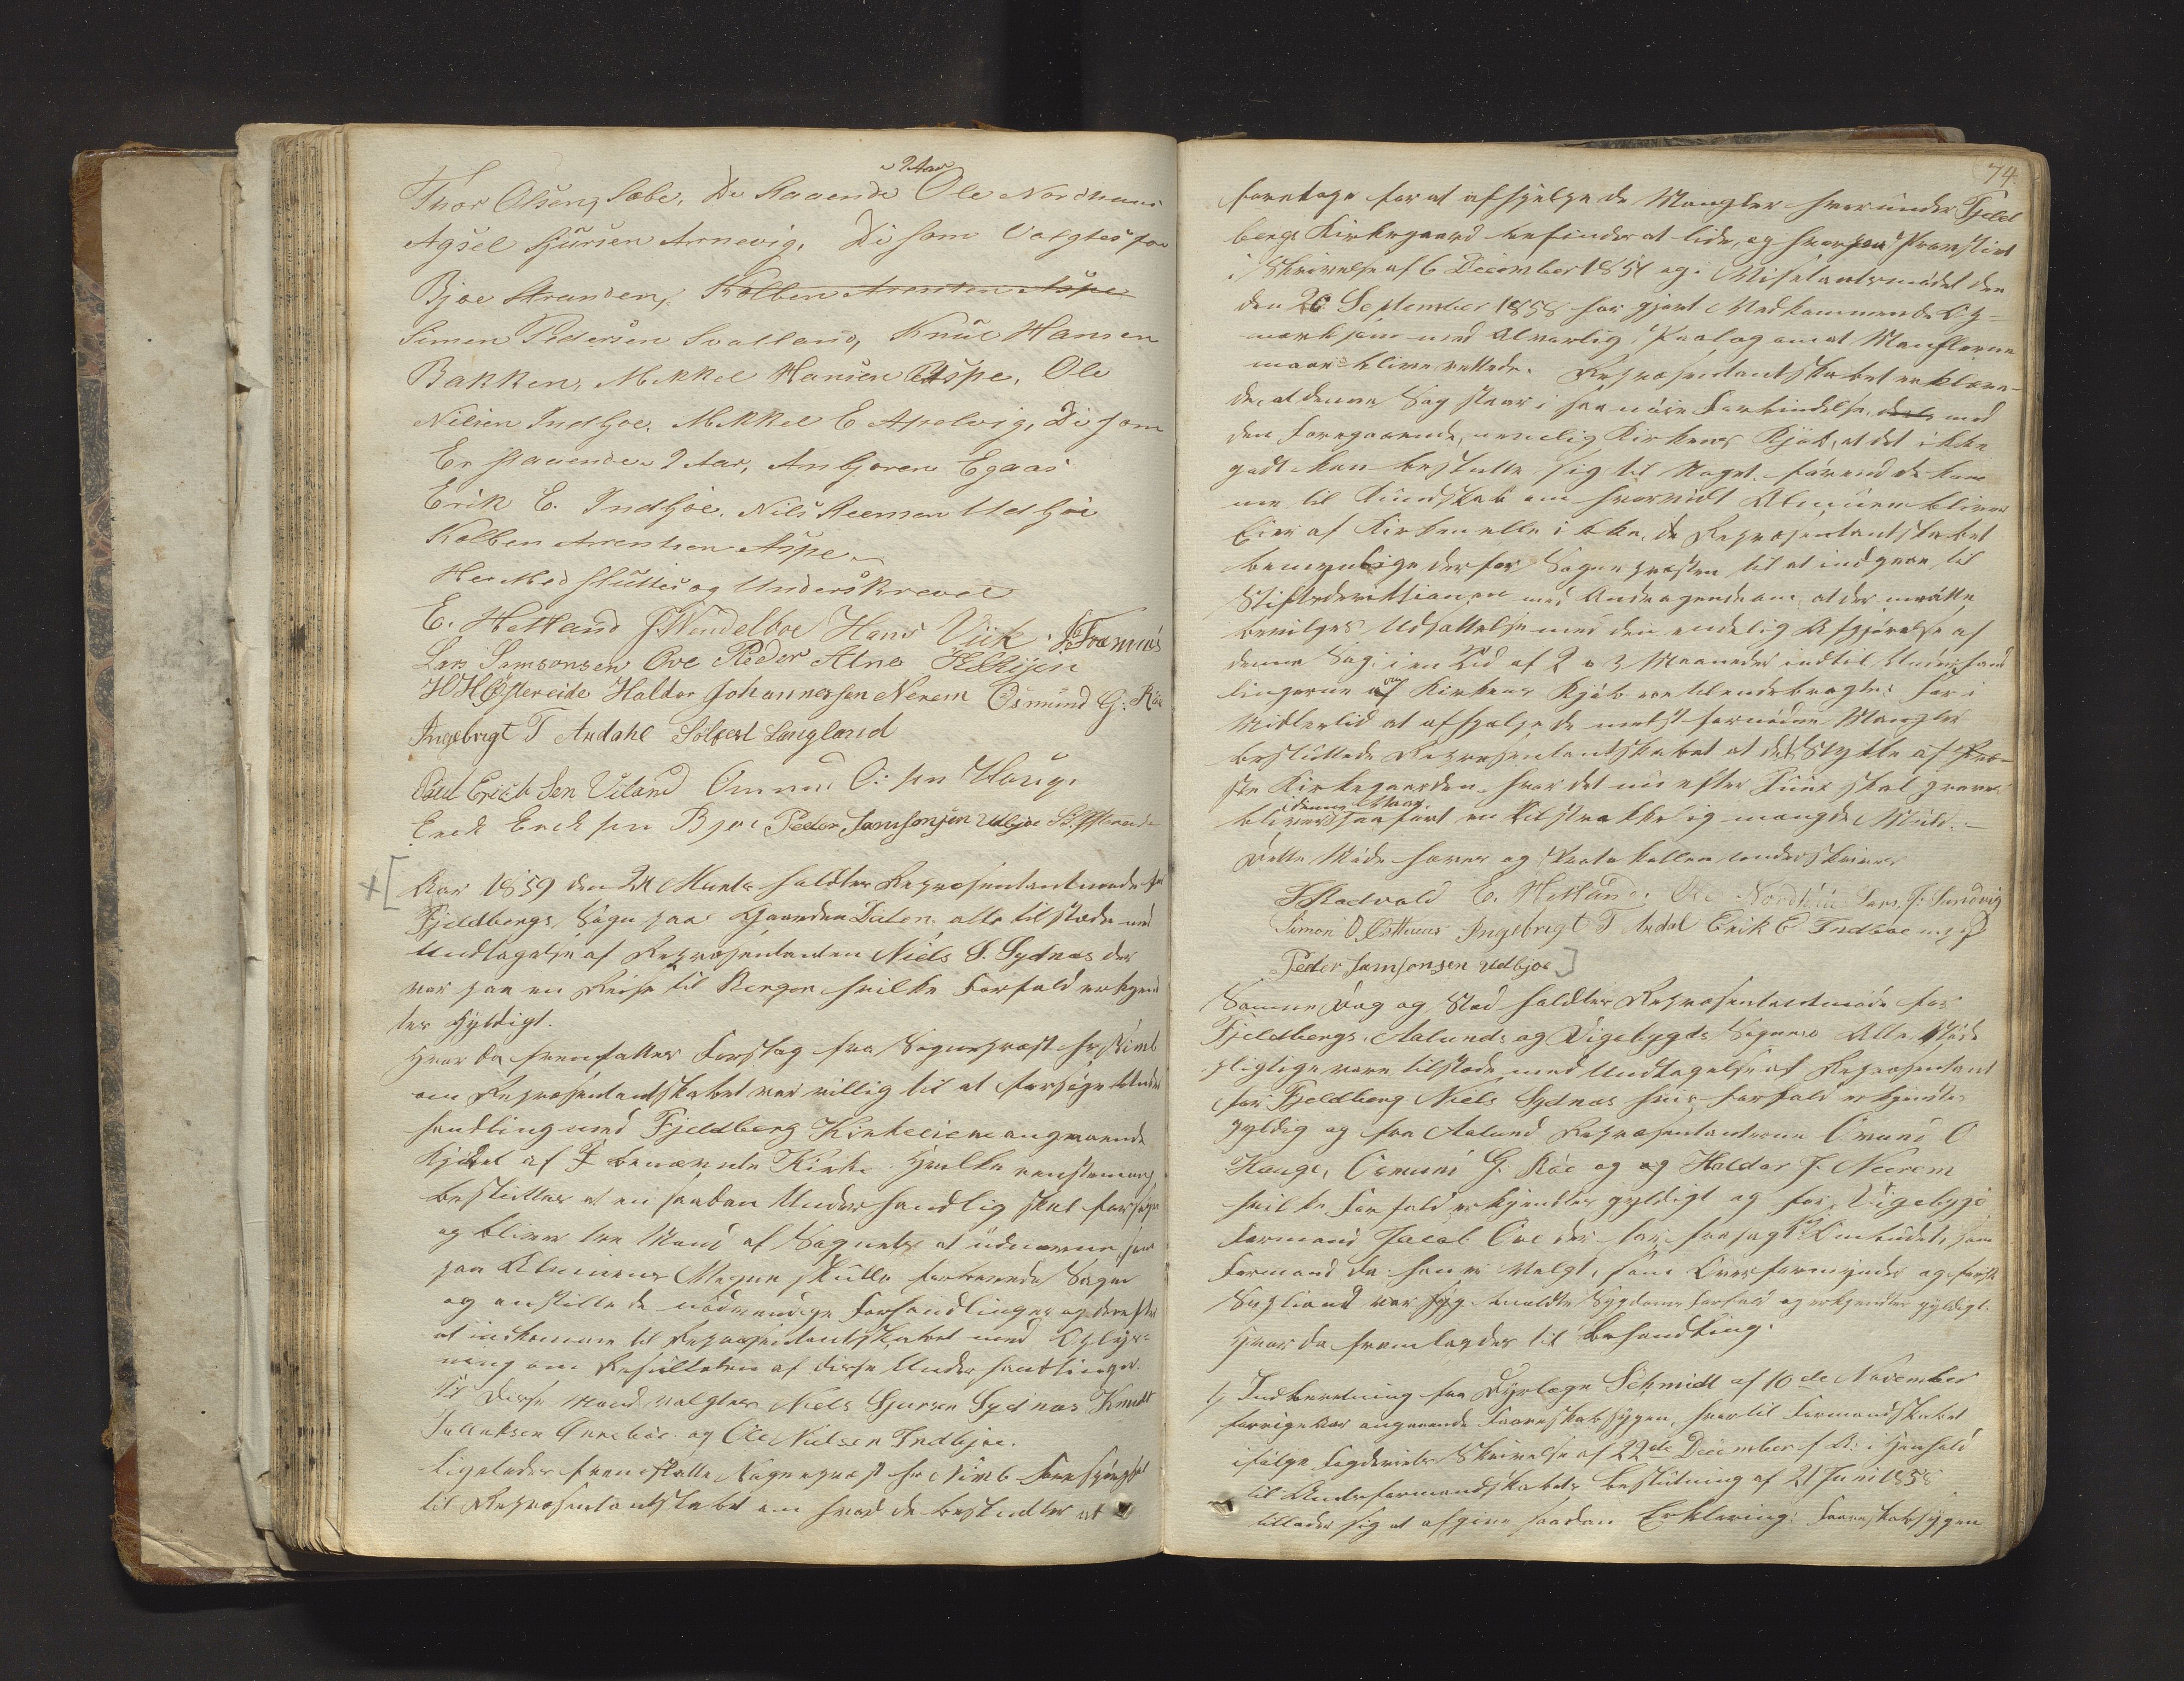 i 2 Aar
Thor Olsen Sæbe, De staaende Ole Nordhuus
Agsel Sjursen Arnevig, De som Valgtes for
Bjoe Stranden, Kolben Arentsen Aspe
Simen Pedersen Svalland, Knut Hansen
Bakken, Mikkel Hansen Aspe, Ole
Nilsen Indbjoe, Mikkel E Apelvig, De som
Er staaende 2 Aar, Anbjoren Egaas
Erik E. Indbjoe, Nils Aamen Udbjoe
Kolben Arentsen Aspe
Her Med sluttes og Underskrevet
E. Hetland J Wendelboe Hans Viik J. Tramnes
Lars Samsonsen Ove Peder Alne
H H Østereide Haldor Johannessen Nerem Osmund G: Röe
Ingebrigt T Ardahl Solfest Langland
Paul Erichsen Viland Omund O: sen Houge
Erek Ereksen Bjoe Peder Samsonsen Udbjoe
Aar 1859 den 21 Marts holdtes Repræsentantmøde for
Fjeldbergs Sogn paa Gaarden Dalen, alle tilstede med
Undtagelse af Repræsentanten Niels S. Sydnæs der
var paa en Reise til Bergen hvilke Forfald erkjend
tes Gyldigt.
Hvor da fremsattes Forslag fra Sognepræst Hr
om Repræsentantskabet var villig til at forsøge Under
handling med Fjeldberg Kirkeeiere angaaende
Kjøbet af benævnte Kirke. Hvilke eenstemig
besluttes at en saadan Underhandlig skal forsøges
og bliver tre Mænd af Sognets at udnævne, som
paa Almuens Vegne skulle foretræde Sagen
og anstille de nødvendige Forhandlinger og derefter
at indkomme til Repræsentantskabet med Oplys-
ning om Resultaten af disse Underhandlinger.
Til disse Mænd valgtes Niels Sjursen Sydnæs Knudt
Tollaksen Onnebøe og Ole Nielsen Indbjoe.
Ligeledes fremstalte Sognepræst Hr Forespørgsel
til Repræsentantskabet om hvad de besluttes at
74
foretage for at afhjelpe de Mangler hvorunder Fjeld
bergs Kirkegaard befindes at lide, og hvorpaa Provstiet
i Skrivelse af 6 December 1857 og i Visitatsmødet den
den 26 September 1858 har gjort Vedkommende Op-
mærksom med Alvorlig Paalæg om at Manglerne
maae blive rettede. Repræsentantskabet erklære-
de, at denne Sag staar i saa nøie Forbindelse, med
den foregaaende, nemlig Kirkens Kjøb, at det ikke
godt kan beslutte sig til Noget, førend de kom
mer til Kundskab om hvorvidt Almuen bliver
Eier af Kirken eller ikke, da Repræsentantskabet
bemyndige derfor Sognepræsten til at indgaae til
Stiftsdirektionen med Andragende om, at der maatte
bevilges Udsættelse med den endelig Afgjørelse af
denne Sag, i en Tid af 2 a 3 Maaneder indtil Underhand
lingerne om Kirkens Kjøb ere tilendebragte: For i
Midlertid at afhjelpe de mest fornødne Mangler
besluttede Repræsentantskabet at det Stykke af
Kirkegaarden hvor det nu efter Tuur skal graves
i denne Vaar
bliver paafört en tilstrækkelig mængde Muld.
Dette Møde hæves og Protokollen underskrives
Stadvold E. Hetland Ole Nordhuus Lars J. Sundvig
Simon O. Østhuus Ingebrigt T Ardal Erik E Indbøe m.p.P
Peder Samsonsen Udbjoe
Samme Dag og Sted holdtes Repræsentantmøde for
Fjeldbergs, Aalunds og Vigebygds Sogne. Alle Møde
pligtige vare tilstede med Undtagelse af Repræsentant
for Fjeldberg Niels Sydnæs hvis Forfald erkjendtes
gyldig og fra Aalund Repræsentanterne Omund O
Houge, Osmund G. Röe og og Haldor J. Neerem
hvilke Forfald erkjendtes gyldigt og for Vigebygd
Formand Jacob Ove der har frasagt sig Ombudet, som
Formand da han er Valgt, som Overformynder og
var syg meldte Sygdoms Forfald og erkjendtes gyldigt.
Hvor da fremlagdes til Behandling:
1) Indberetning fra Dyrlæge Schmidt af 10de November
forrige Aar angaaende Faareskabsygen, hvortil Formandskabet
ifølge Fogderiets Skrivelse af 22de December f. A. i Henhold
til Amtsformandskabets Beslutning af 21 Juni 1858
tillader sig at afgive saadan Erklæring: Faareskabsygen